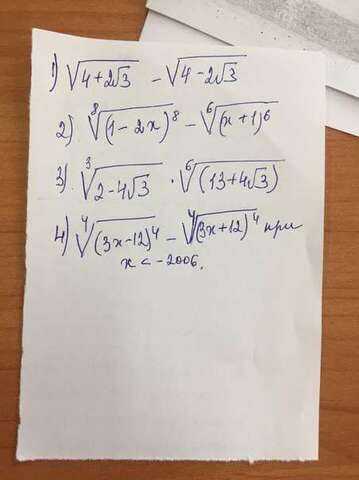 1) √(4+2√3) - √(4-2√3)
2) ⁸√(1-2x)⁸ - ⁶√(x+1)⁶
3) ³√(2-4√3) · ⁶√(13+4√3)
4) ⁴√(3x-12)⁴ - ⁴√(3x+12)⁴ при
x < -2006.